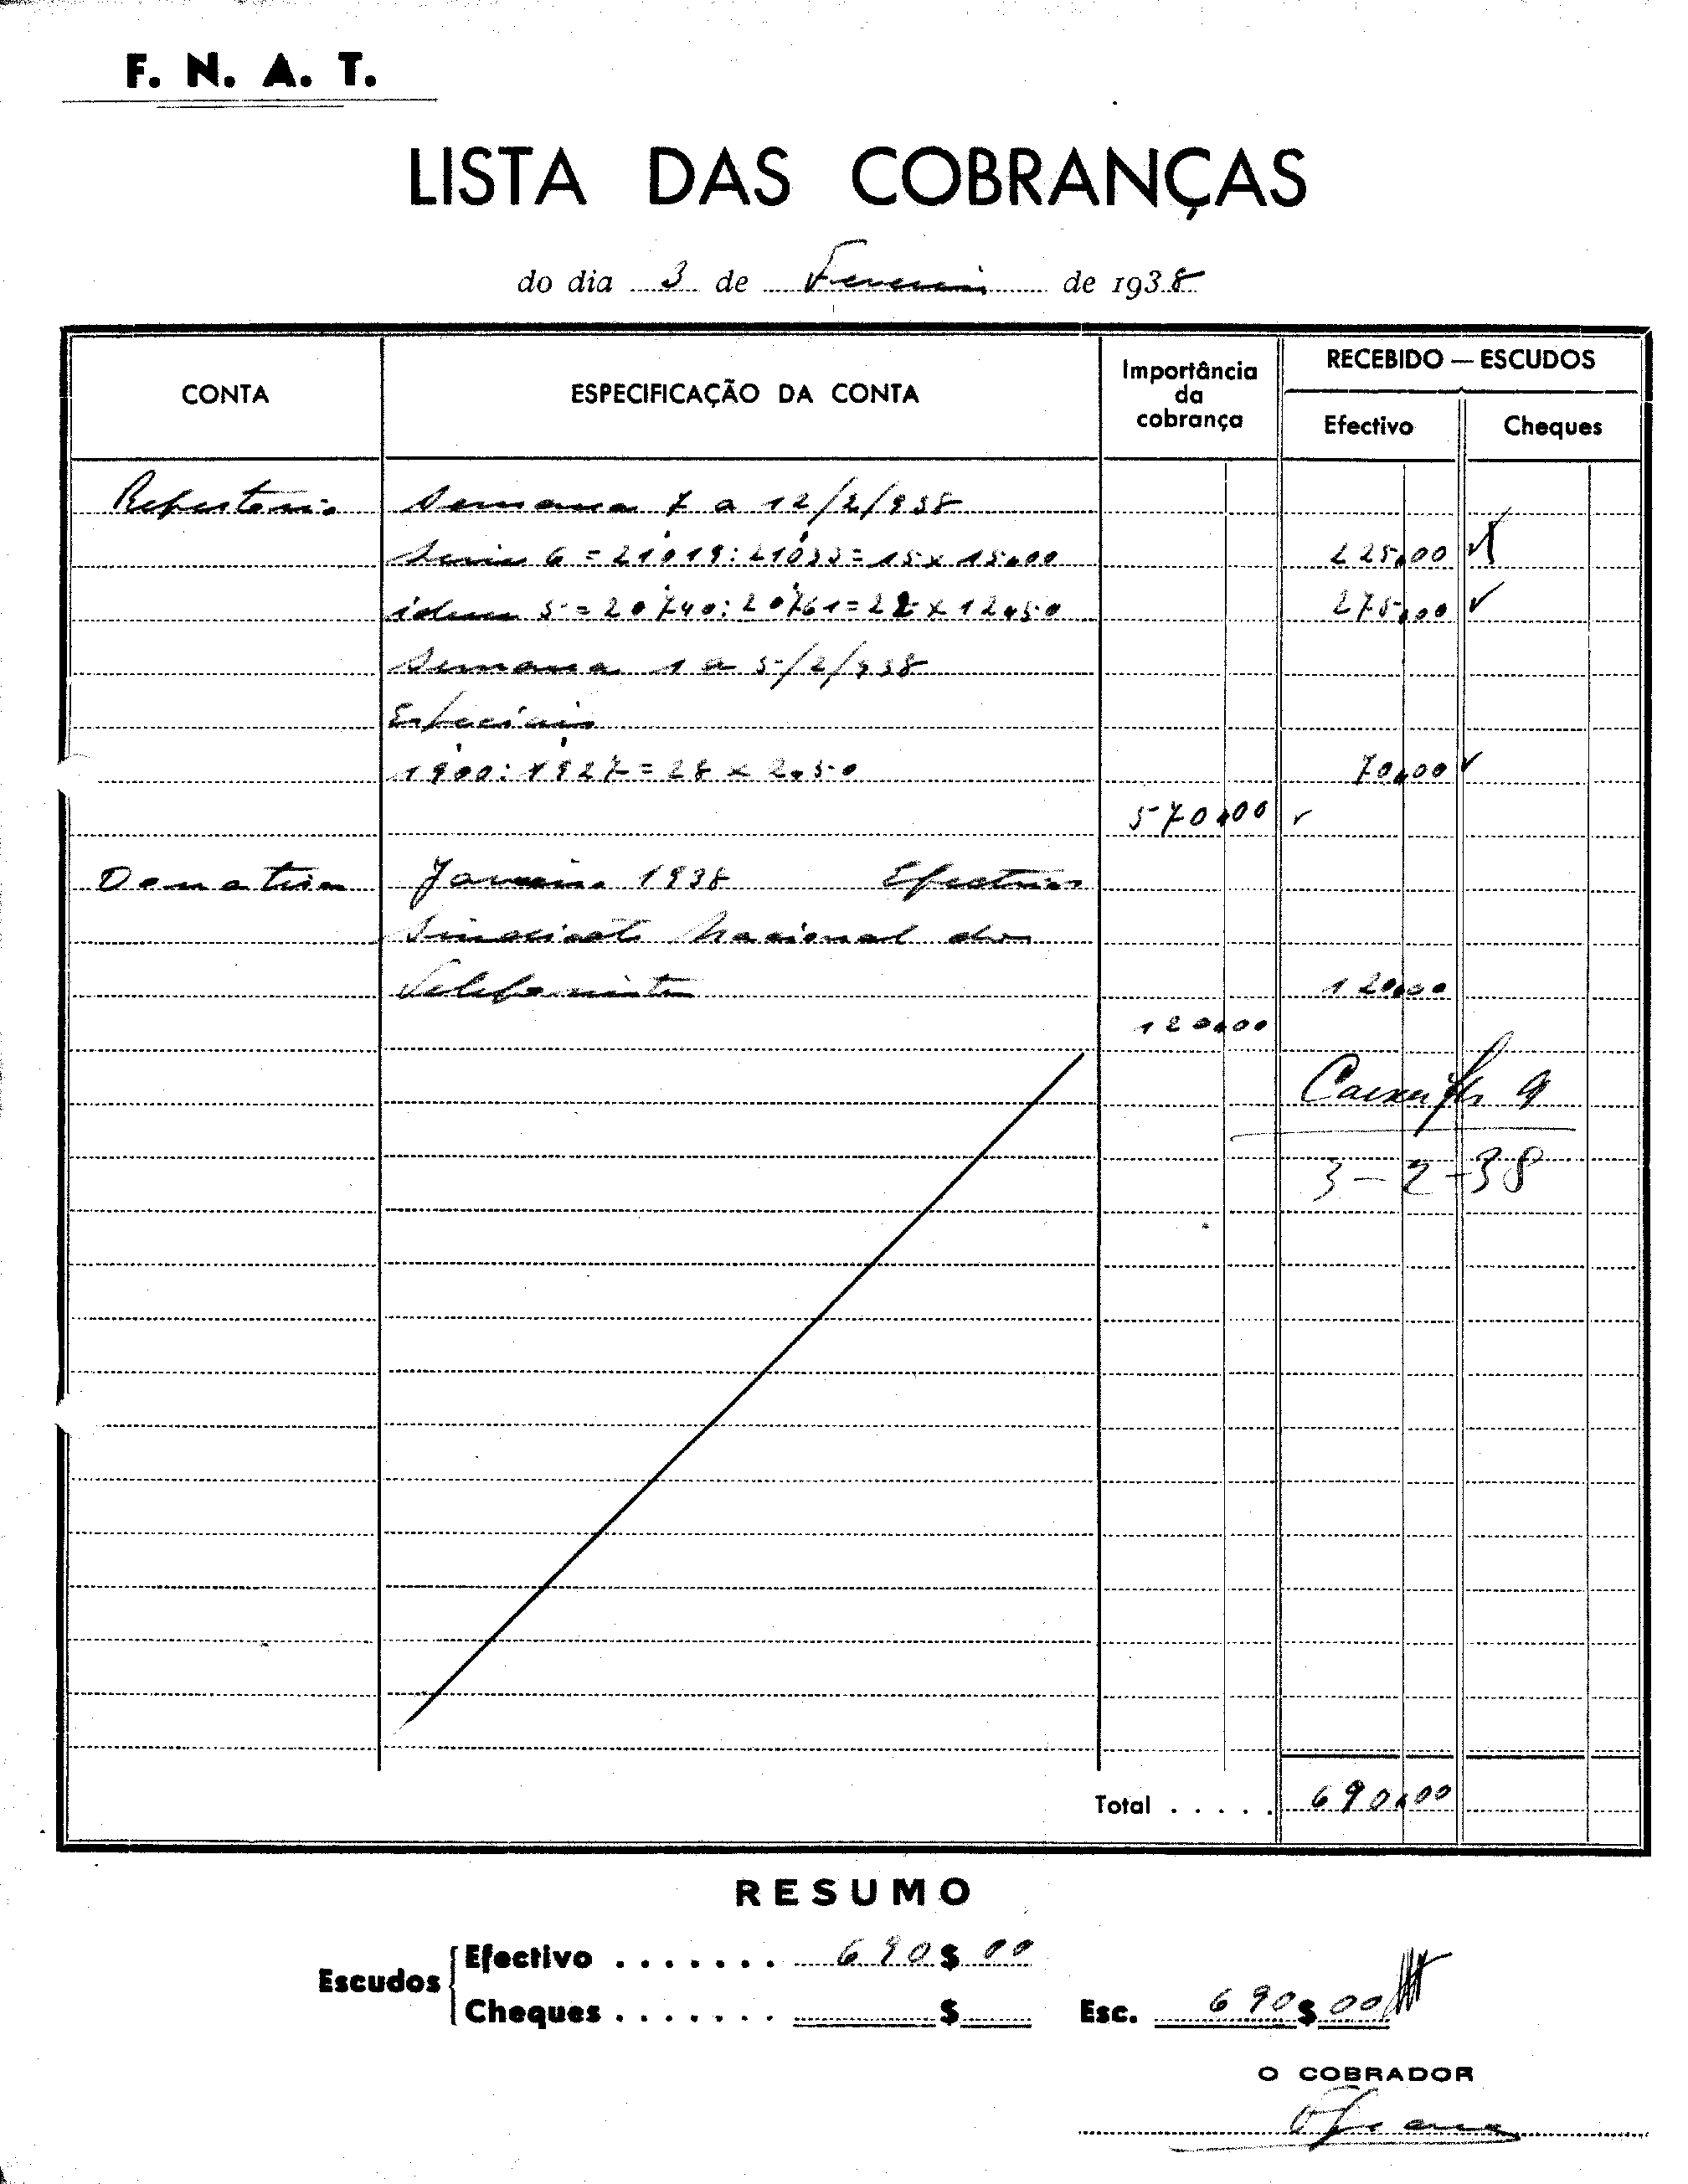 F. N. A. T.
LISTA DAS COBRANÇAS
do dia 3 de Fevereiro de 1938
CONTA
ESPECIFICAÇÃO DA CONTA
Importância
da
cobrança
RECEBIDO — ESCUDOS
Efectivo
Cheques
Semana 7 a 12/2/938
Serie 6 = 21019:21033 = 15 x 15,00 225,00
idem 5 = 20740:20761 = 22 x 12,50 275,00
Semana 1 a 5/2/938
Especiais
1900:1927 = 28 x 2,50 70,00
570,00
Donativos Janeiro 1938 Efectivos
Sindicato Nacional dos
Telefonistas 120,00
120,00
Caixa fls 9
3-2-38
Total ..... 690,00
RESUMO
Escudos
Efectivo ....... 690$00
Cheques ....... $
Esc. 690$00
O COBRADOR